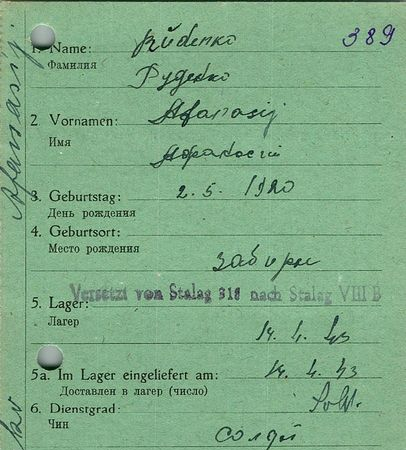 389
1. Name: Rudenko
Фамилия Руденко
2. Vornamen: Afanasij
Имя Афанасий
3. Geburtstag: 2. 5. 1920
День рождения
4. Geburtsort:
Место рождения
Versetzt von Stalag 318 nach Stalag VIII B
5. Lager:
Лагерь 14. 4. 43
5a. Im Lager eingeliefert am: 14. 4. 43
Доставлен в лагерь (число)
6. Dienstgrad: Sold.
Чин солдат
Afanasij